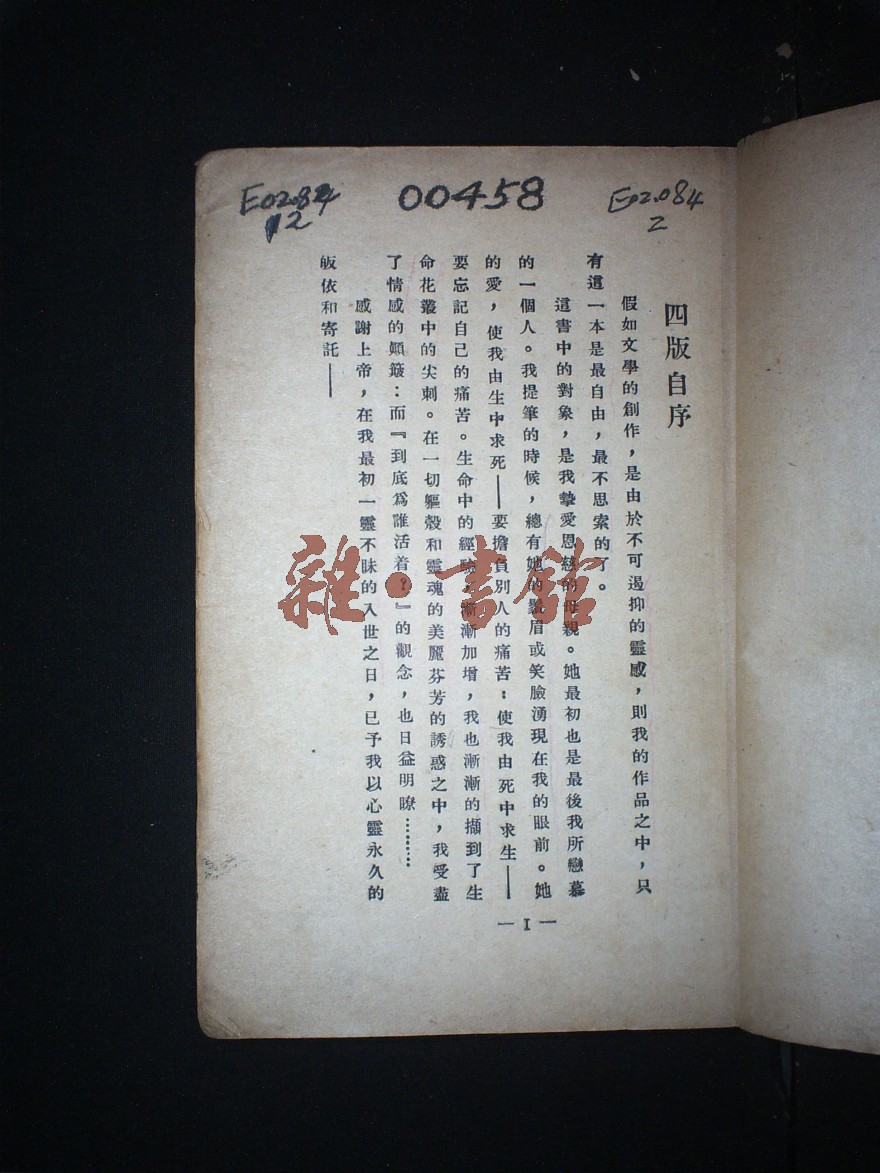 E02.084
12
00458
E02.084
2
四版自序
假如文學的創作，是由於不可遏抑的靈感，則我的作品之中，只
有這一本是最自由，最不思索的了。
這書中的對象，是我摯愛恩慈的母親。她最初也是最後我所戀慕
的一個人。我提筆的時候，總有她的顰眉或笑臉湧現在我的眼前。她
的愛，使我由生中求死——要擔負別人的痛苦；使我由死中求生——
要忘記自己的痛苦。生命中的經驗，漸漸加增，我也漸漸的擷到了生
命花叢中的尖刺。在一切軀殼和靈魂的美麗芬芳的誘惑之中，我受盡
了情感的顚簸；而『到底爲誰活着？』的觀念，也日益明瞭………
感謝上帝，在我最初一靈不昧的入世之日，已予我以心靈永久的
皈依和寄託——
— I —
雜·書館